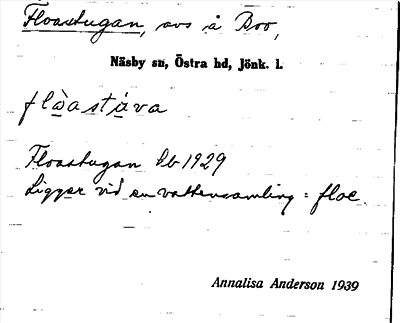 Floastugan, avs å Boo,
Näsby sn, Östra hd, Jönk. l.
flòastúva
Floastugan lb 1929
Ligger vid en vattensamling = floe.
Annalisa Anderson 1939